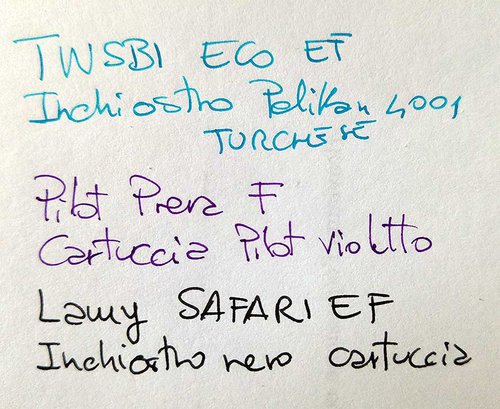 TWSBI ECO EF
Inchiostro Pelikan 4001
TURCHESE
Pilot Prera F
Cartuccia Pilot violetto
Lamy SAFARI EF
Inchiostro nero cartuccia